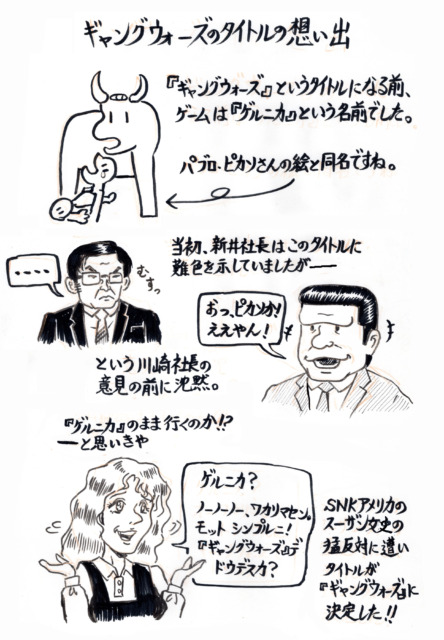 ギャングウォーズのタイトルの想い出
『ギャングウォーズ』というタイトルになる前、
ゲームは『ゲルニカ』という名前でした。
パブロ・ピカソさんの絵と同名ですね。
当初、新井社長はこのタイトルに
難色を示していましたが──
・・・・・
むすっ
おっ、ピカソか!
ええやん!
という川崎社長の
意見の前に沈黙。
『ゲルニカ』のまま行くのか!?
──と思いきや
ゲルニカ?
ノーノーノー、ワカリマセン。
モット シンプルニ!
『ギャングウォーズ』デ
ドウデスカ?
SNKアメリカの
スーザン女史の
猛反対に遭い
タイトルが
『ギャングウォーズ』に
決定した!!